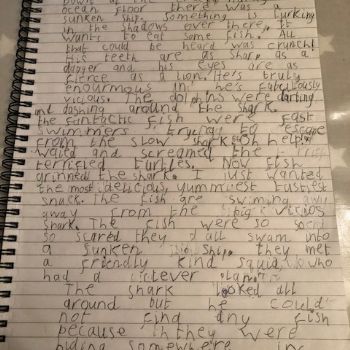 Down at the
ocean floor there was a
sunken ship. Something lurking
in the shadows over there. It
want to eat some fish. All
that could be heard was crunch!
His teeth are as sharp as a
dagger and his eyes are as
fierce as a lion. He's truly
enourmous in he's fabulously
vicous. The dolphins were darting
and dashing around the shark.
The fantastic fish were fast
swimmers trying to escape
from the slow shark. Oh help!
Waled and screamed the
terrified turtles. Now fish
grinned the shark. I just wanted
the most delicious yummiest tastiest
snack. The fish are swiming away
away from the big vicious
shark. The fish were so
so scared they all swam into
a sunken ship. they met
a friendly kind squid who
had a clever plan.
The shark looked all
around but he could
not find any fish
because they were
hiding somewhere in